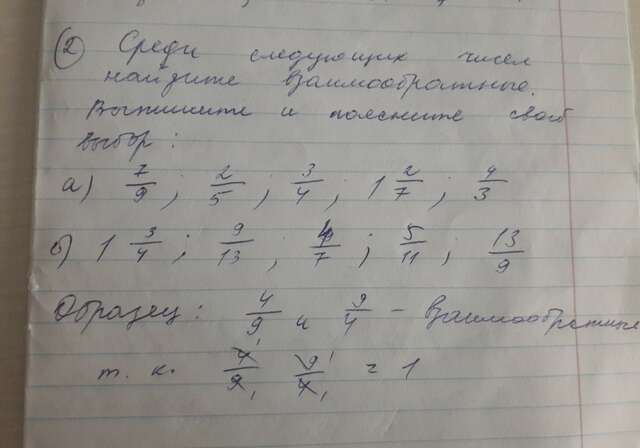 ② Среди следующих чисел
найдите взаимообратные.
Выпишите и поясните свой
выбор:
а) 7/9; 2/5; 3/4; 1 2/7; 4/3
б) 1 3/4; 9/13; 4/7; 5/11; 13/9
Образец: 4/9 и 9/4 – взаимообратные
т. к. 4/9 9/4 = 1